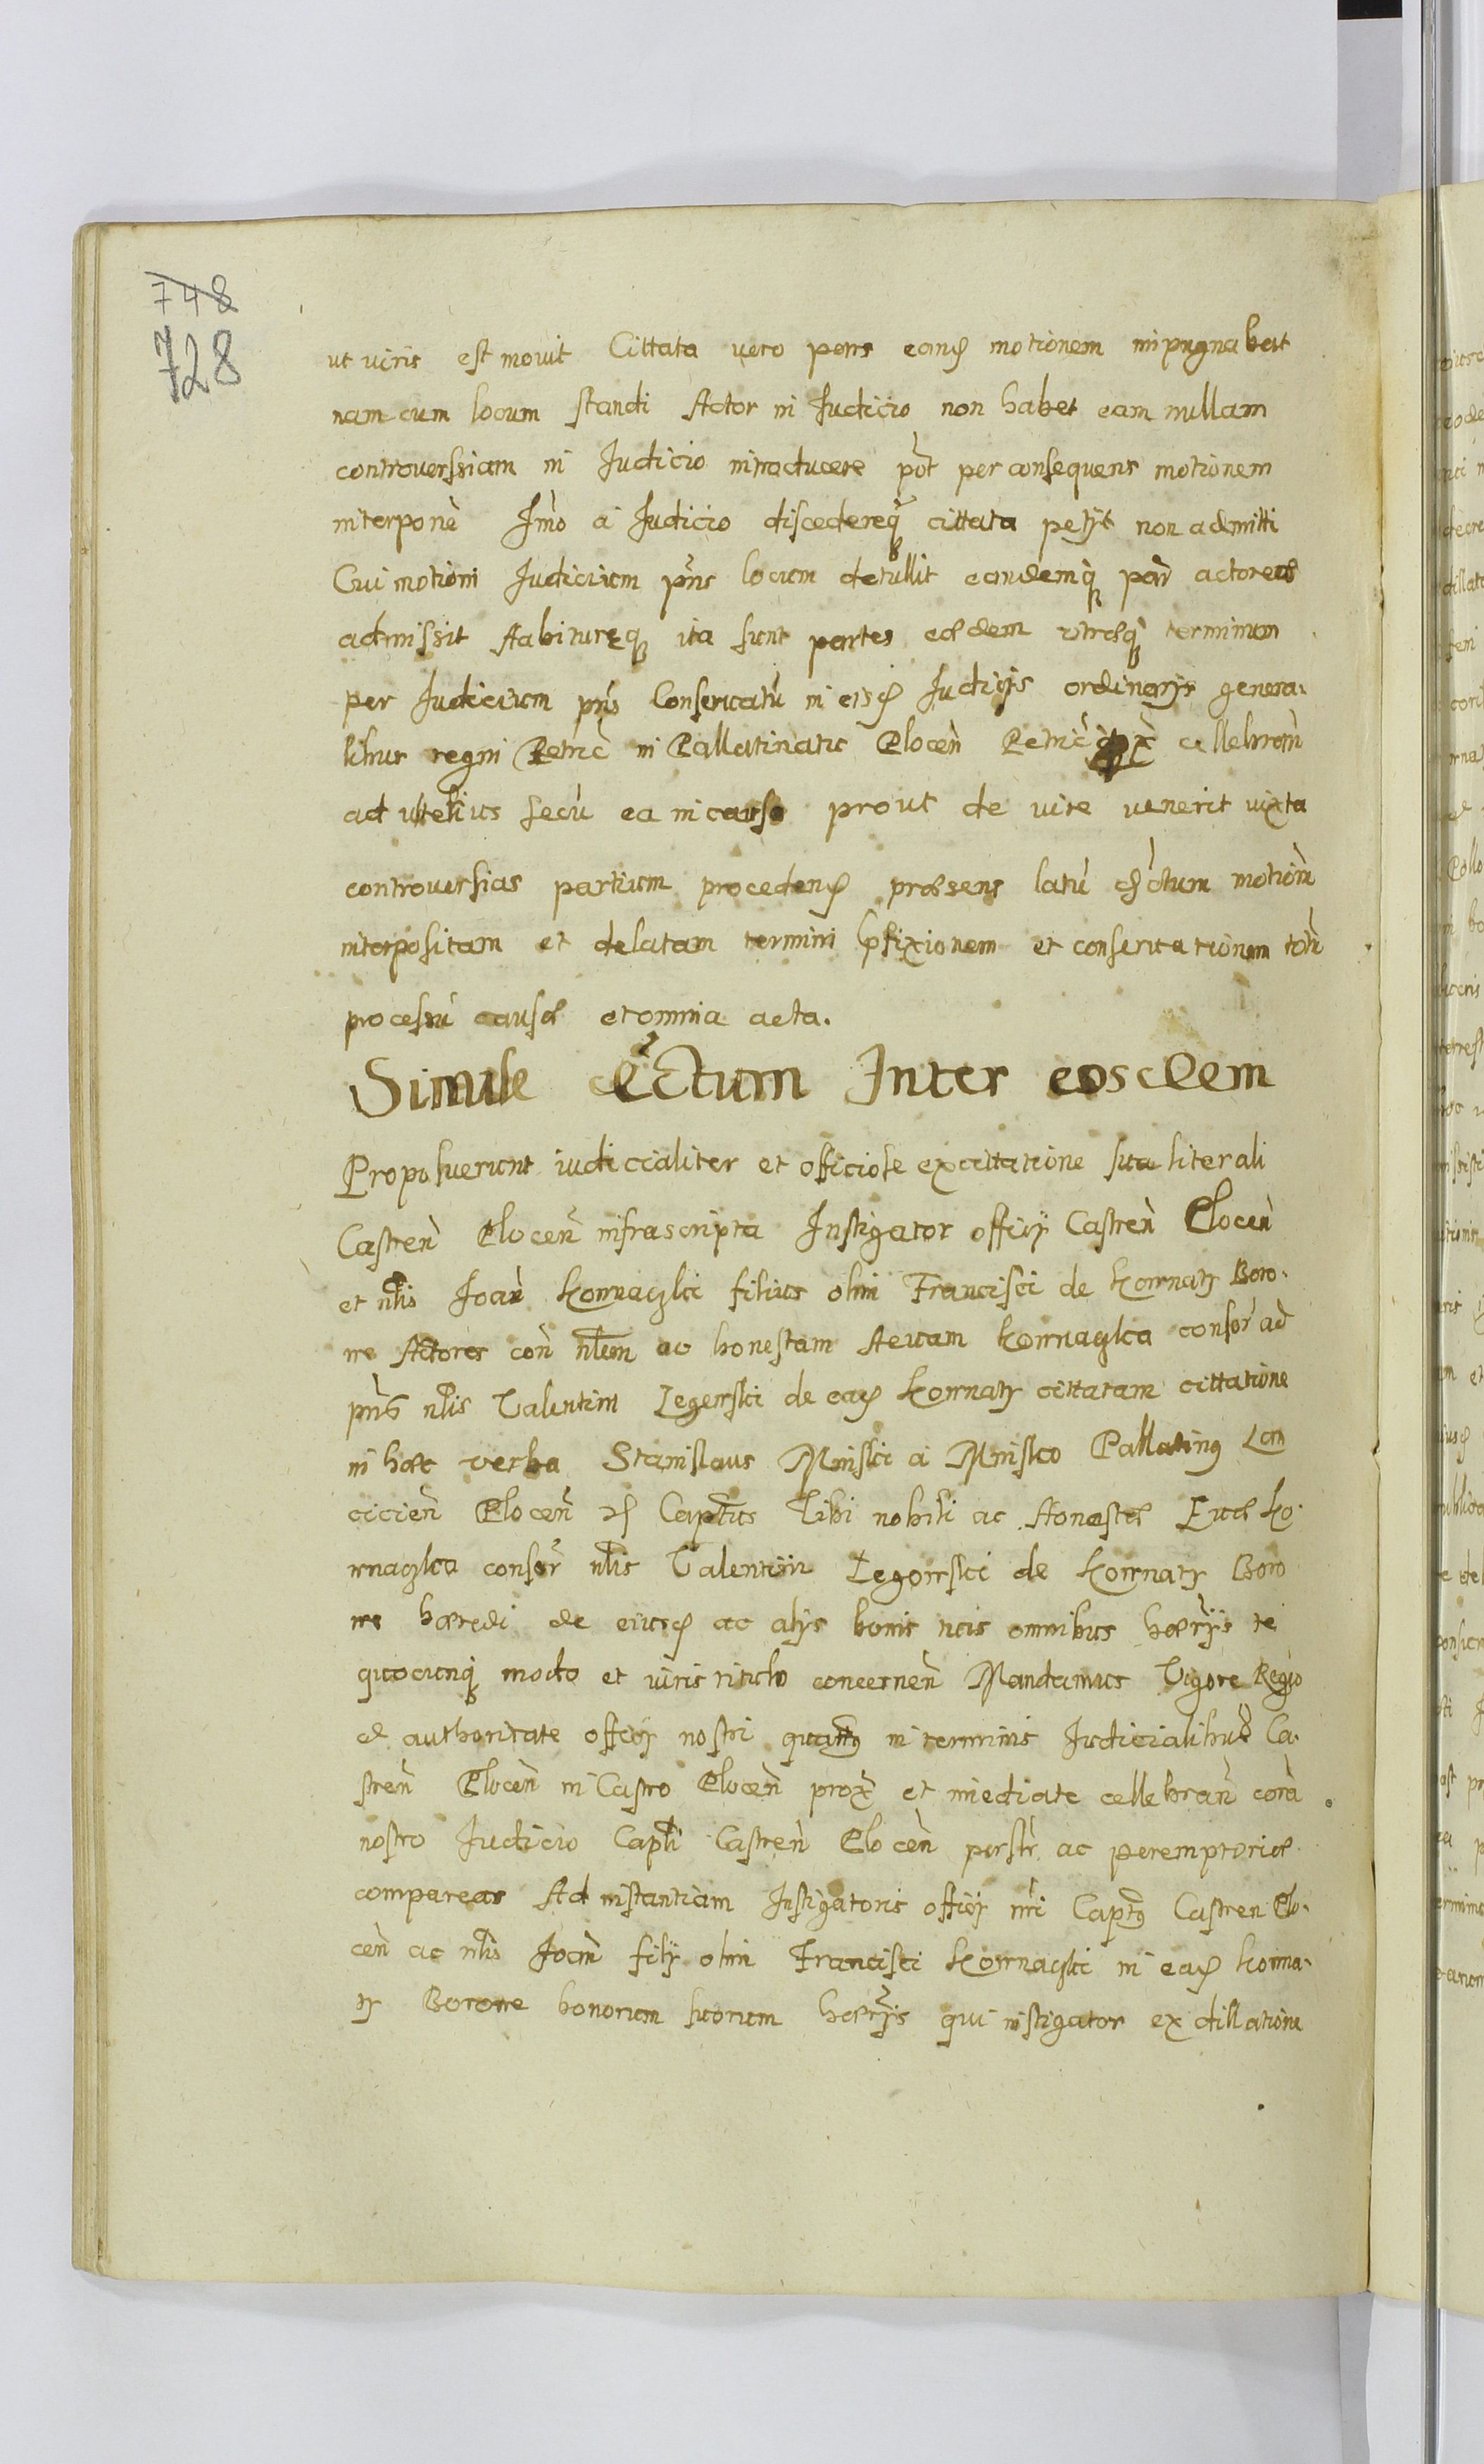 748
728
ut uiris est mouit Cittata uero pars eand motionem inpugnabat
nam cum locum standi Actor in Iudicio non habet eam nullam
controuerssiam in Iudicio introducere pōt per consequens motionem
interponē Imo a Iudicio discedereq̨ cittata petÿt non admitti
Cui motioni Iudicium pñs locum detullit eandemq̨ par actoreæ
admissit Habitureq̨ ita sunt partes eædem utræq̨ terminum
per Iudicium pñs Conseruatū in eisd Iudicÿs ordinarÿs genera.
libus regni Petric̄ in Pallatinatu Plocen̄ Petric̄ cellebran̄
ad ulterius secū ea in causa prout de iure uenerit iuxta
controuersias partium procedend præsens latū dectum motion̄
interpositam et delatam termini pfixionem et conseruationem totū
processū causæ et omnia acta.
Simile dectum Inter eosdem
Proposuerunt iudicialiter et officiose ex cittatione sua literali
Castren̄ Plocen̄ infrascripta Instigator officÿ Castren̄ Plocen̄
et nłis Joan̄ Kornaczki filius olim Francisci de Kornaty Boro.
ne Actores con̄ nłem ac honestam Aeuam Kornaczka consor̄ ad
pñs nłis Valentini Zegerski de ead Kornaty cittatam cittatione
in hæc verba Stanislaus Minski a Minsko Pallatinus Lan
cicien̄ Plocen̄ Captus Tibi nobili ac Honestæ Euæ Ko.
rnaczka consor̄ nłis Valentini Zegerski de Kornaty Boro
ne hæredi de eiusd ac alÿs bonis tuis omnibus hærÿs te
quocunq̨ modo et iuris titulo concernen̄ Mandamus Vigore Regio
et authoritate officÿ nostri quatus in terminis Iudicialibus Ca.
stren̄ Plocen̄ in Castro Plocen̄ prox̄ et imediate cellebran̄ corā
nostro Iudicio Capłi Castren̄ Plocen̄ persłr ac peremptorie
compareas Ad instantiam Instigatoris officÿ nr̄i Captus Castren Plo.
cen̄ ac nłis Joan̄ filÿ olim Francisci Kornaczki in ead Korna.
ty Borone bonorum suorum hærÿs qui instigator ex dillatione